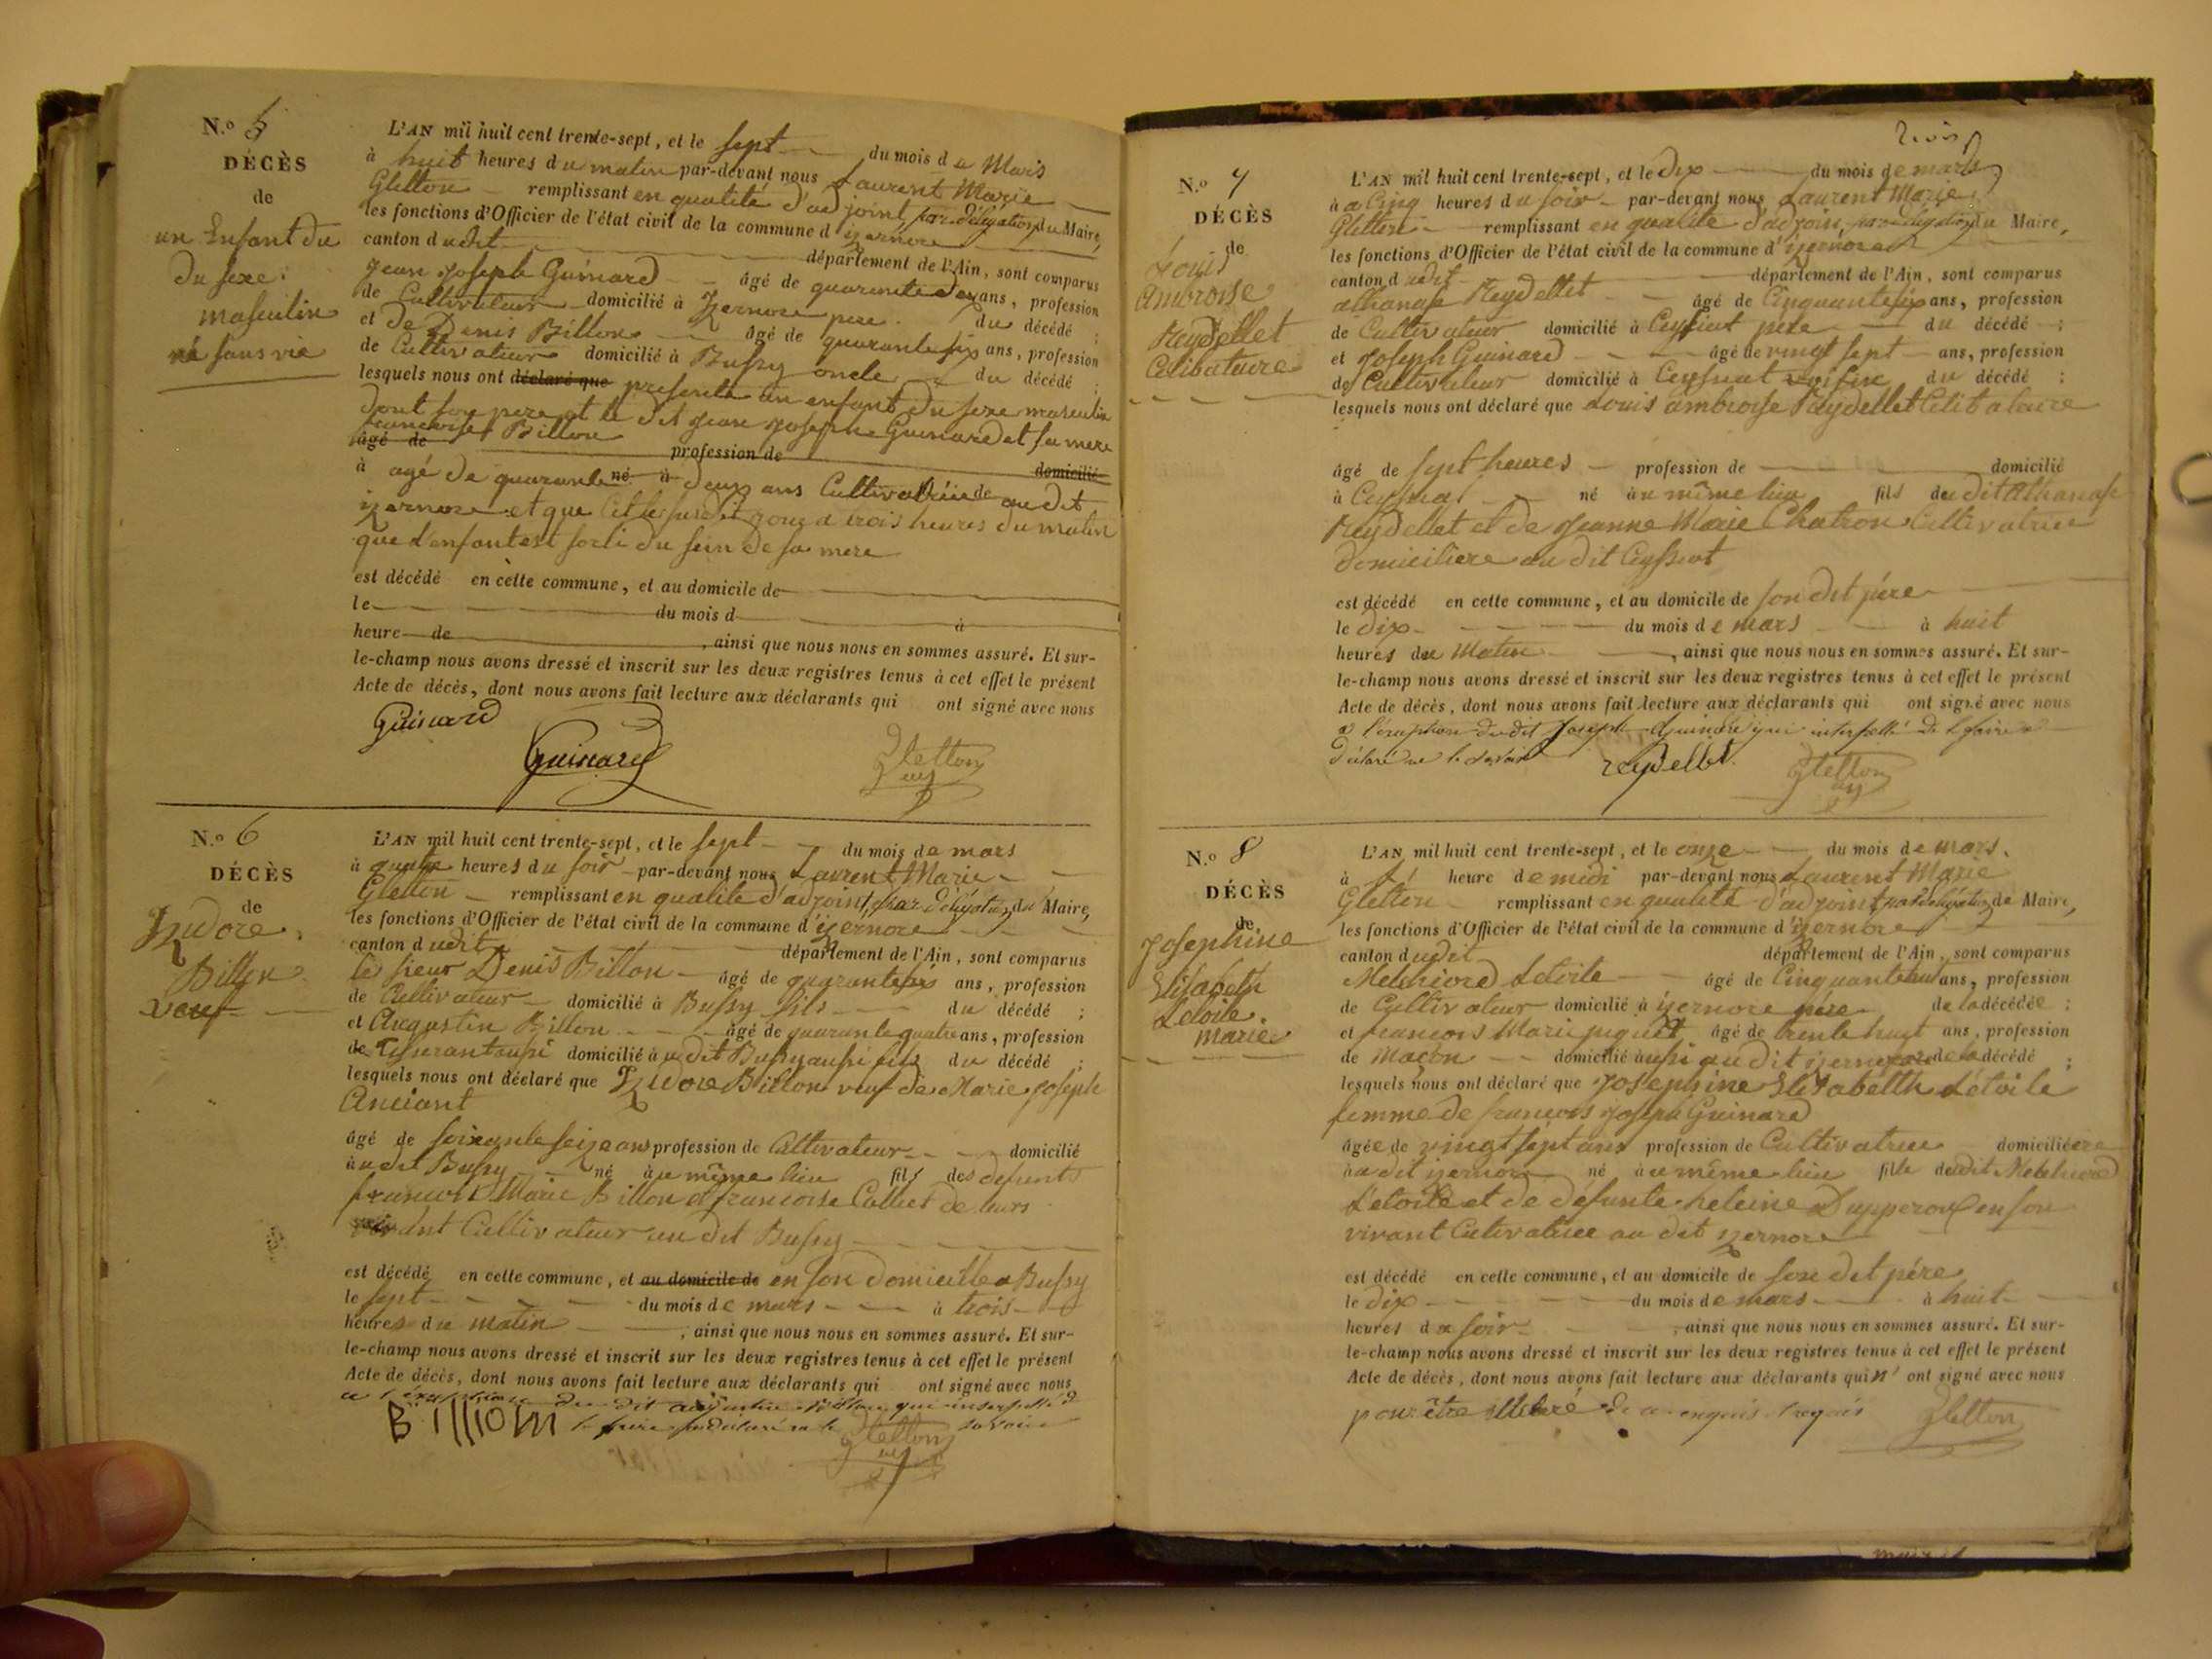 N.o 5
DÉCÈS
de
un Enfant du
du sexe
masculin
né sans vie
L'AN mil huit cent trente-sept, et le sept du mois de Mars
à huit heures du matin par-devant nous Laurent Marie
Gletton remplissant en qualité d'adjoint par délégation du Maire,
les fonctions d'Officier de l'état civil de la commune d'izernore
canton dudit département de l'Ain, sont comparus
Jean Joseph Guinard âgé de quarante deux ans, profession
de Cultivateur domicilié à Izernore pere du décédé ;
et de Denis Billon âgé de quarante six ans, profession
de Cultivateur domicilié à Bussy oncle du décédé ;
lesquels nous ont déclaré que presenté un enfant du sexe masculin
dont son pere et le dit Jean Joseph Guinard et sa mere
francoise Billon
âgé de profession de domicilié
à agé de quarante né à deux ans Cultivatrice de au dit
izernore et que cit le susdit jour a trois heures du matin
que l'enfant est sorti du sein de sa mere
est décédé en cette commune, et au domicile de
le du mois d à
heure de , ainsi que nous nous en sommes assuré. Et sur-
le-champ nous avons dressé et inscrit sur les deux registres tenus à cet effet le présent
Acte de décès, dont nous avons fait lecture aux déclarants qui ont signé avec nous
Guinard
Guinard
Gletton
adj
N.o 6
DÉCÈS
de
Izidore
Billon
veuf
L'AN mil huit cent trente-sept, et le sept du mois de mars
à quatre heures du soir par-devant nous Laurent Marie
Gletton remplissant en qualité d'adjoint, par délégation du Maire,
les fonctions d'Officier de l'état civil de la commune d'izernore
canton dudit département de l'Ain, sont comparus
le sieur Denis Billon âgé de quarante six ans, profession
de Cultivateur domicilié à Bussy fils du décédé ;
et Augustin Billon âgé de quarante quatre ans, profession
de Tisserant aussi domicilié à udit Bussy aussi fils du décédé ;
lesquels nous ont déclaré que Izidore Billon veuf de Marie Joseph
Anciant
âgé de soixante seize ans profession de Cultivateur domicilié
à udit Bussy né à u même lieu fils des defunts
francois Marie Billon et francoise Collet de leurs
vivant Cultivateur au dit Bussy
est décédé en cette commune, et au domicile de en son domicille a Bussy
le sept du mois de mars à trois
heures du matin , ainsi que nous nous en sommes assuré. Et sur-
le-champ nous avons dressé et inscrit sur les deux registres tenus à cet effet le présent
Acte de décès, dont nous avons fait lecture aux déclarants qui ont signé avec nous
a l'exception du dit augustin Billon qui interpellé d
Billion le faire a déclaré ne le savoir
Gletton
adj
N.o 7
DÉCÈS
de
Louis
Ambroise
Reydellet
Célibataire
L'AN mil huit cent trente-sept, et le dix du mois de mars
à a Cinq heures du soir par-devant nous Laurent Marie
Gletton remplissant en qualité d'adjoin, par délégation du Maire,
les fonctions d'Officier de l'état civil de la commune d'izernore
canton dudit département de l'Ain, sont comparus
athanase Reydellet âgé de Cinquante six ans, profession
de Cultivateur domicilié à Ceyssiat pere du décédé ;
et Joseph Guinard âgé de vingt sept ans, profession
de Cultivateur domicilié à Ceyssiat voisin du décédé ;
lesquels nous ont déclaré que Louis ambroise Reydellet Célibataire
âgé de sept heures profession de domicilié
à Ceyssiat né à u même lieu fils du dit Athanase
Reydellet et de Jeanne Marie Chatron Cultivatrice
domiciliere au dit Ceyssiat
est décédé en cette commune, et au domicile de son dit père
le dix du mois de mars à huit
heures du Matin , ainsi que nous nous en sommes assuré. Et sur-
le-champ nous avons dressé et inscrit sur les deux registres tenus à cet effet le présent
Acte de décès, dont nous avons fait lecture aux déclarants qui ont signé avec nous
a l'exception du dit Joseph Guinard qui interpellé de le faire a
déclaré ne le savoir
reydellet
Gletton
adj
N.o 8
DÉCÈS
de
Josephine
Elisabeth
Letoile
mariée
L'AN mil huit cent trente-sept, et le onze du mois de mars
à heure de midi par-devant nous Laurent Marie
Gletton remplissant en qualité d'adjoint par délégation du Maire,
les fonctions d'Officier de l'état civil de la commune d'izernore
canton dudit département de l'Ain, sont comparus
Melchiord Letoile âgé de Cinquante huit ans, profession
de Cultivateur domicilié à izernore père de la décédée ;
et francois Marie juguet âgé de trente huit ans, profession
de Macon domicilié aussi au dit izernore de la décédé ;
lesquels nous ont déclaré que Josephine Elisabelth Létoile
femme de francois Joseph Guinard
âgée de vingt sept ans profession de Cultivatrice domiciliéere
à u dit izernore né à u même lieu fille du dit Melchiord
Letoile et de défunte heleine Dupperoux en son
vivant Cultivatrice au dit izernore
est décédé en cette commune, et au domicile de son dit père
le dix du mois de mars à huit
heures du soir , ainsi que nous nous en sommes assuré. Et sur-
le-champ nous avons dressé et inscrit sur les deux registres tenus à cet effet le présent
Acte de décès, dont nous avons fait lecture aux déclarants qui n'ont signé avec nous
pour être illétéré de ce enquis et requis
Gletton